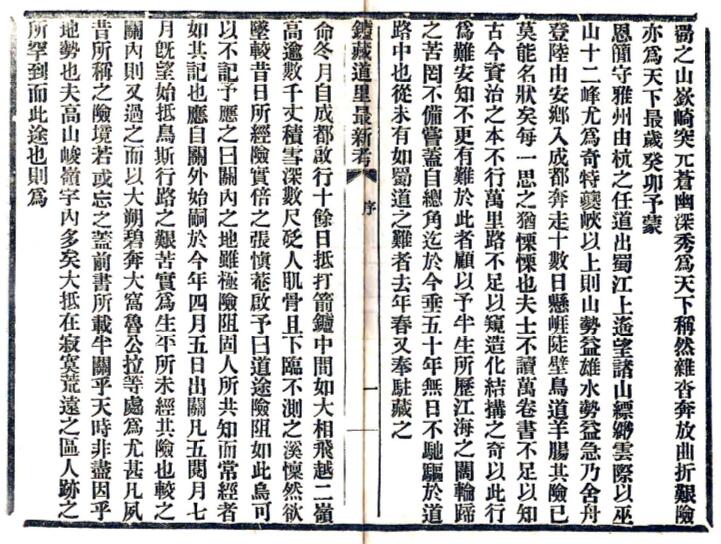 蜀之山嶔崎突兀蒼幽深秀爲天下稱然雜沓奔放曲折艱險
亦爲天下最歲癸卯予蒙
恩簡守雅州由杭之任道出蜀江上遙望諸山縹緲雲際以巫
山十二峰尤爲奇特夔峽以上則山勢益雄水勢益急乃舍舟
登陸由安鄉入成都奔走十數日懸崕陡壁鳥道羊腸其險已
莫能名狀矣每一思之猶慄慄也夫士不讀萬卷書不足以知
古今資治之本不行萬里路不足以窺造化結搆之奇以此行
爲難安知不更有難於此者顧以予半生所歷江海之闊輪蹄
之苦罔不備嘗蓋自總角迄於今垂五十年無日不馳驅於道
路中也從未有如蜀道之難者去年春又奉駐藏之
鑪藏道里最新考 序 一
命冬月自成都啟行十餘日抵打箭鑪中間如大相飛越二嶺
高逾數千丈積雪深數尺砭人肌骨且下臨不測之溪懍然欲
墜較昔日所經險實倍之張愼菴啟予曰道途險阻如此烏可
以不記予應之曰關內之地雖極險阻固人所共知而常經者
如其記也應自關外始嗣於今年四月五日出關凡五閱月七
月旣望始抵烏斯行路之艱苦實爲生平所未經其險也較之
關內則又過之而以大朔碧奔大窩魯公拉等處爲尤甚凡夙
昔所稱之險境若或忘之蓋前書所載半關乎天時非盡因乎
地勢也夫高山峻嶺宇內多矣大抵在寂寞荒遠之區人跡之
所罕到而此途也則爲